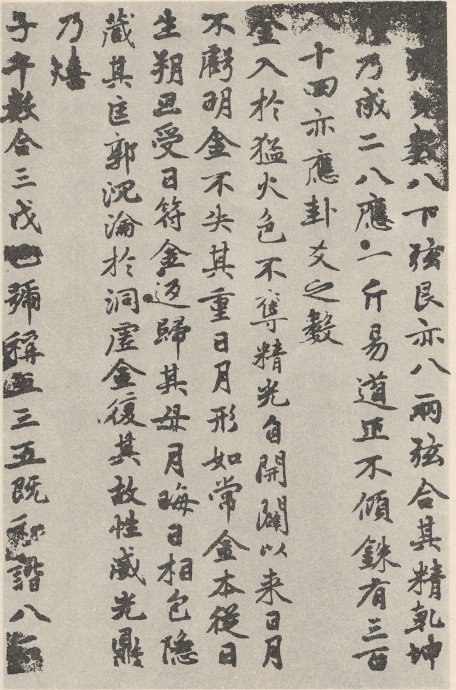 數八下弦艮亦八兩弦合其精乾坤
乃成二八應一斤易道正不傾銖有三百
十四亦應卦爻之數
金入於猛火色不奪精光自開闢以来日月
不虧明金不失其重日月形如常金本從日
生朔旦受日符金返歸其母月晦日相包隱
藏其匡郭沉淪於洞虛金復其故性威光鼎
乃熺
子午數合三戊己號稱五三五既和諧八石